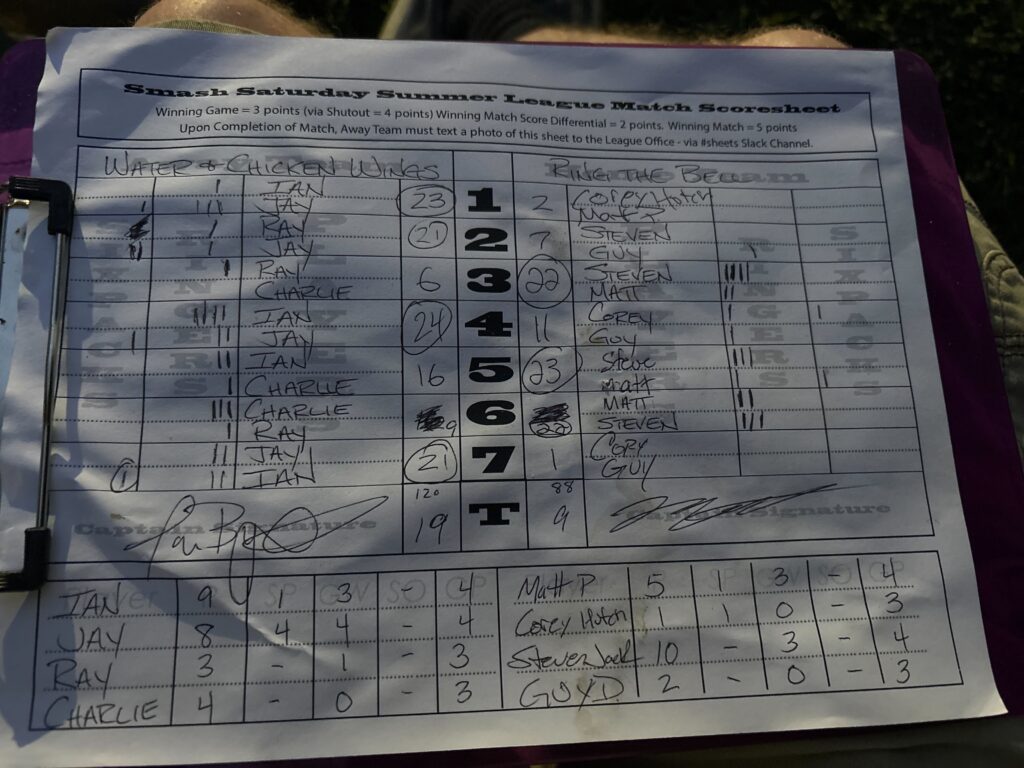 Smash Saturday Summer League Match Scoresheet
Winning Game = 3 points (via Shutout = 4 points) Winning Match Score Differential = 2 points. Winning Match = 5 points
Upon Completion of Match, Away Team must text a photo of this sheet to the League Office - via #sheets Slack Channel.
WATER & CHICKEN WINGS RING THE BELL
I IAN 23 1 2 Corey Hutch
I III JAY Matt P
I RAY 21 2 7 STEVEN
II I JAY GUY I
I RAY 6 3 22 STEVEN IIII
CHARLIE MATT II
IIII IAN 24 4 11 COREY I I
I II JAY GUY I
II IAN 16 5 23 Steve III
I CHARLIE Matt I I
III CHARLIE 9 6 22 MATT II
I RAY STEVEN III
II JAY 21 7 1 CORY
I II IAN GUY
120 T 88
19 9
Captain Signature Captain Signature
IAN 9 1 3 - 4 Matt P 5 1 3 - 4
JAY 8 4 4 - 4 Corey Hutch 1 1 0 - 3
RAY 3 - 1 - 3 Steven Jack 10 - 3 - 4
CHARLIE 4 - 0 - 3 GUY D. 2 - 0 - 3